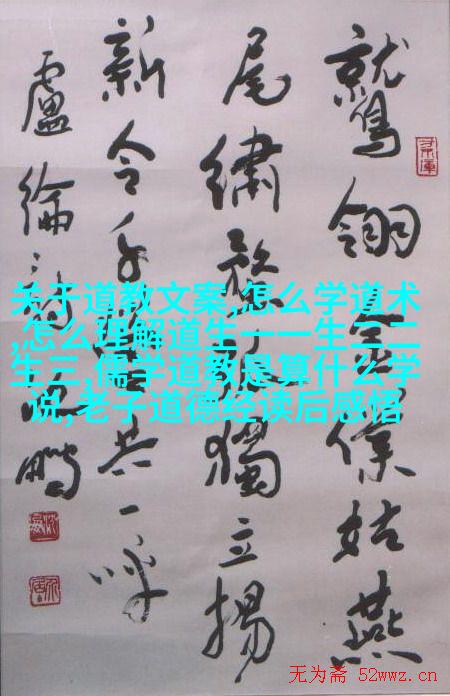 鷲翎金僕姑燕
尾繡蝥弧獨立揚
新令千營共一呼
盧綸詩鵬
关于道教文案,怎么学道术
,怎么理解道生一一生二二
生三,儒学道教是算什么学
说,老子道德经读后感悟
无为斋 52wwz.cn